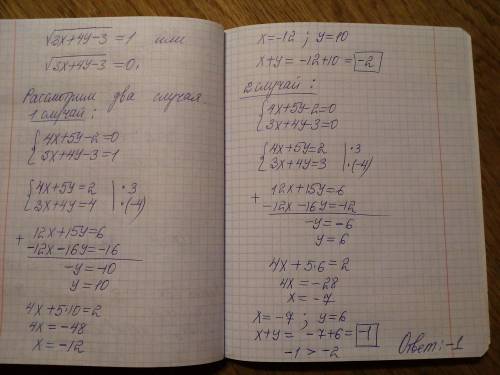 √3x+4y-3 = 1 или
√3x+4y-3 = 0.
Рассмотрим два случая.
1 случай:
{4x+5y-2=0
3x+4y-3=1
{4x+5y=2 | ·3
3x+4y=4 | ·(-4)
+ 12x+15y=6
-12x-16y=-16
-y=-10
y=10
4x+5·10=2
4x=-48
x=-12
x=-12 ; y=10
x+y= -12+10= -2
2 случай:
{4x+5y-2=0
3x+4y-3=0
{4x+5y=2 | ·3
3x+4y=3 | ·(-4)
+ 12x+15y=6
-12x-16y=-12
-y=-6
y=6
4x+5·6=2
4x=-28
x=-7
x=-7 ; y=6
x+y= -7+6= -1
-1 > -2
Ответ: -1